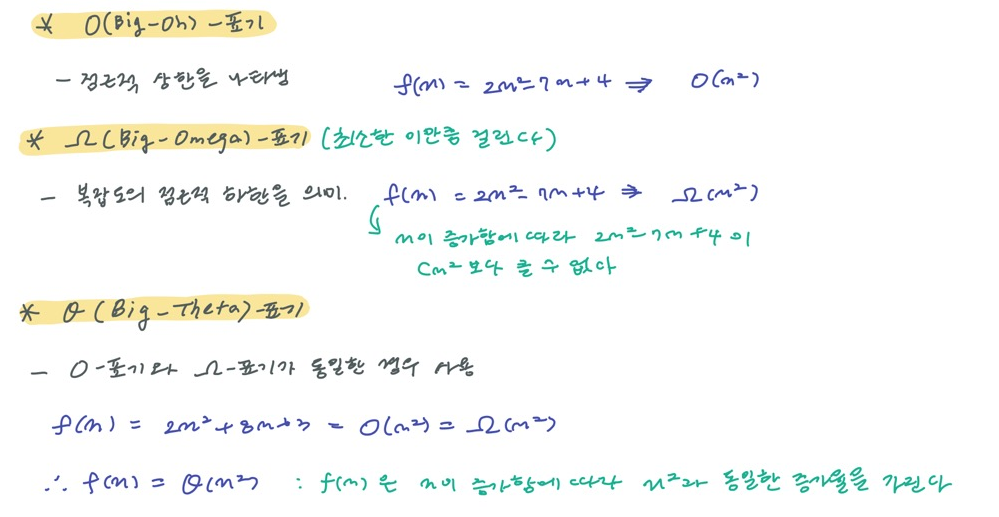 * O(Big-Oh)-표기
- 점근적 상한을 나타냄 f(n) = 2n²-7n+4 ⇒ O(n²)
* Ω(Big-Omega)-표기 (최소한 이만큼 걸린다)
- 복잡도의 점근적 하한을 의미. f(n) = 2n²-7n+4 ⇒ Ω(n²)
n이 증가함에 따라 2n²-7n+4이
cn²보다 클 수 없다
* θ(Big-Theta)-표기
- O-표기와 Ω-표기가 동일한 경우 사용
f(n) = 2n²+8n+3 = O(n²) = Ω(n²)
∴ f(n) = θ(n²) : f(n)은 n이 증가함에 따라 n²과 동일한 증가율을 가진다